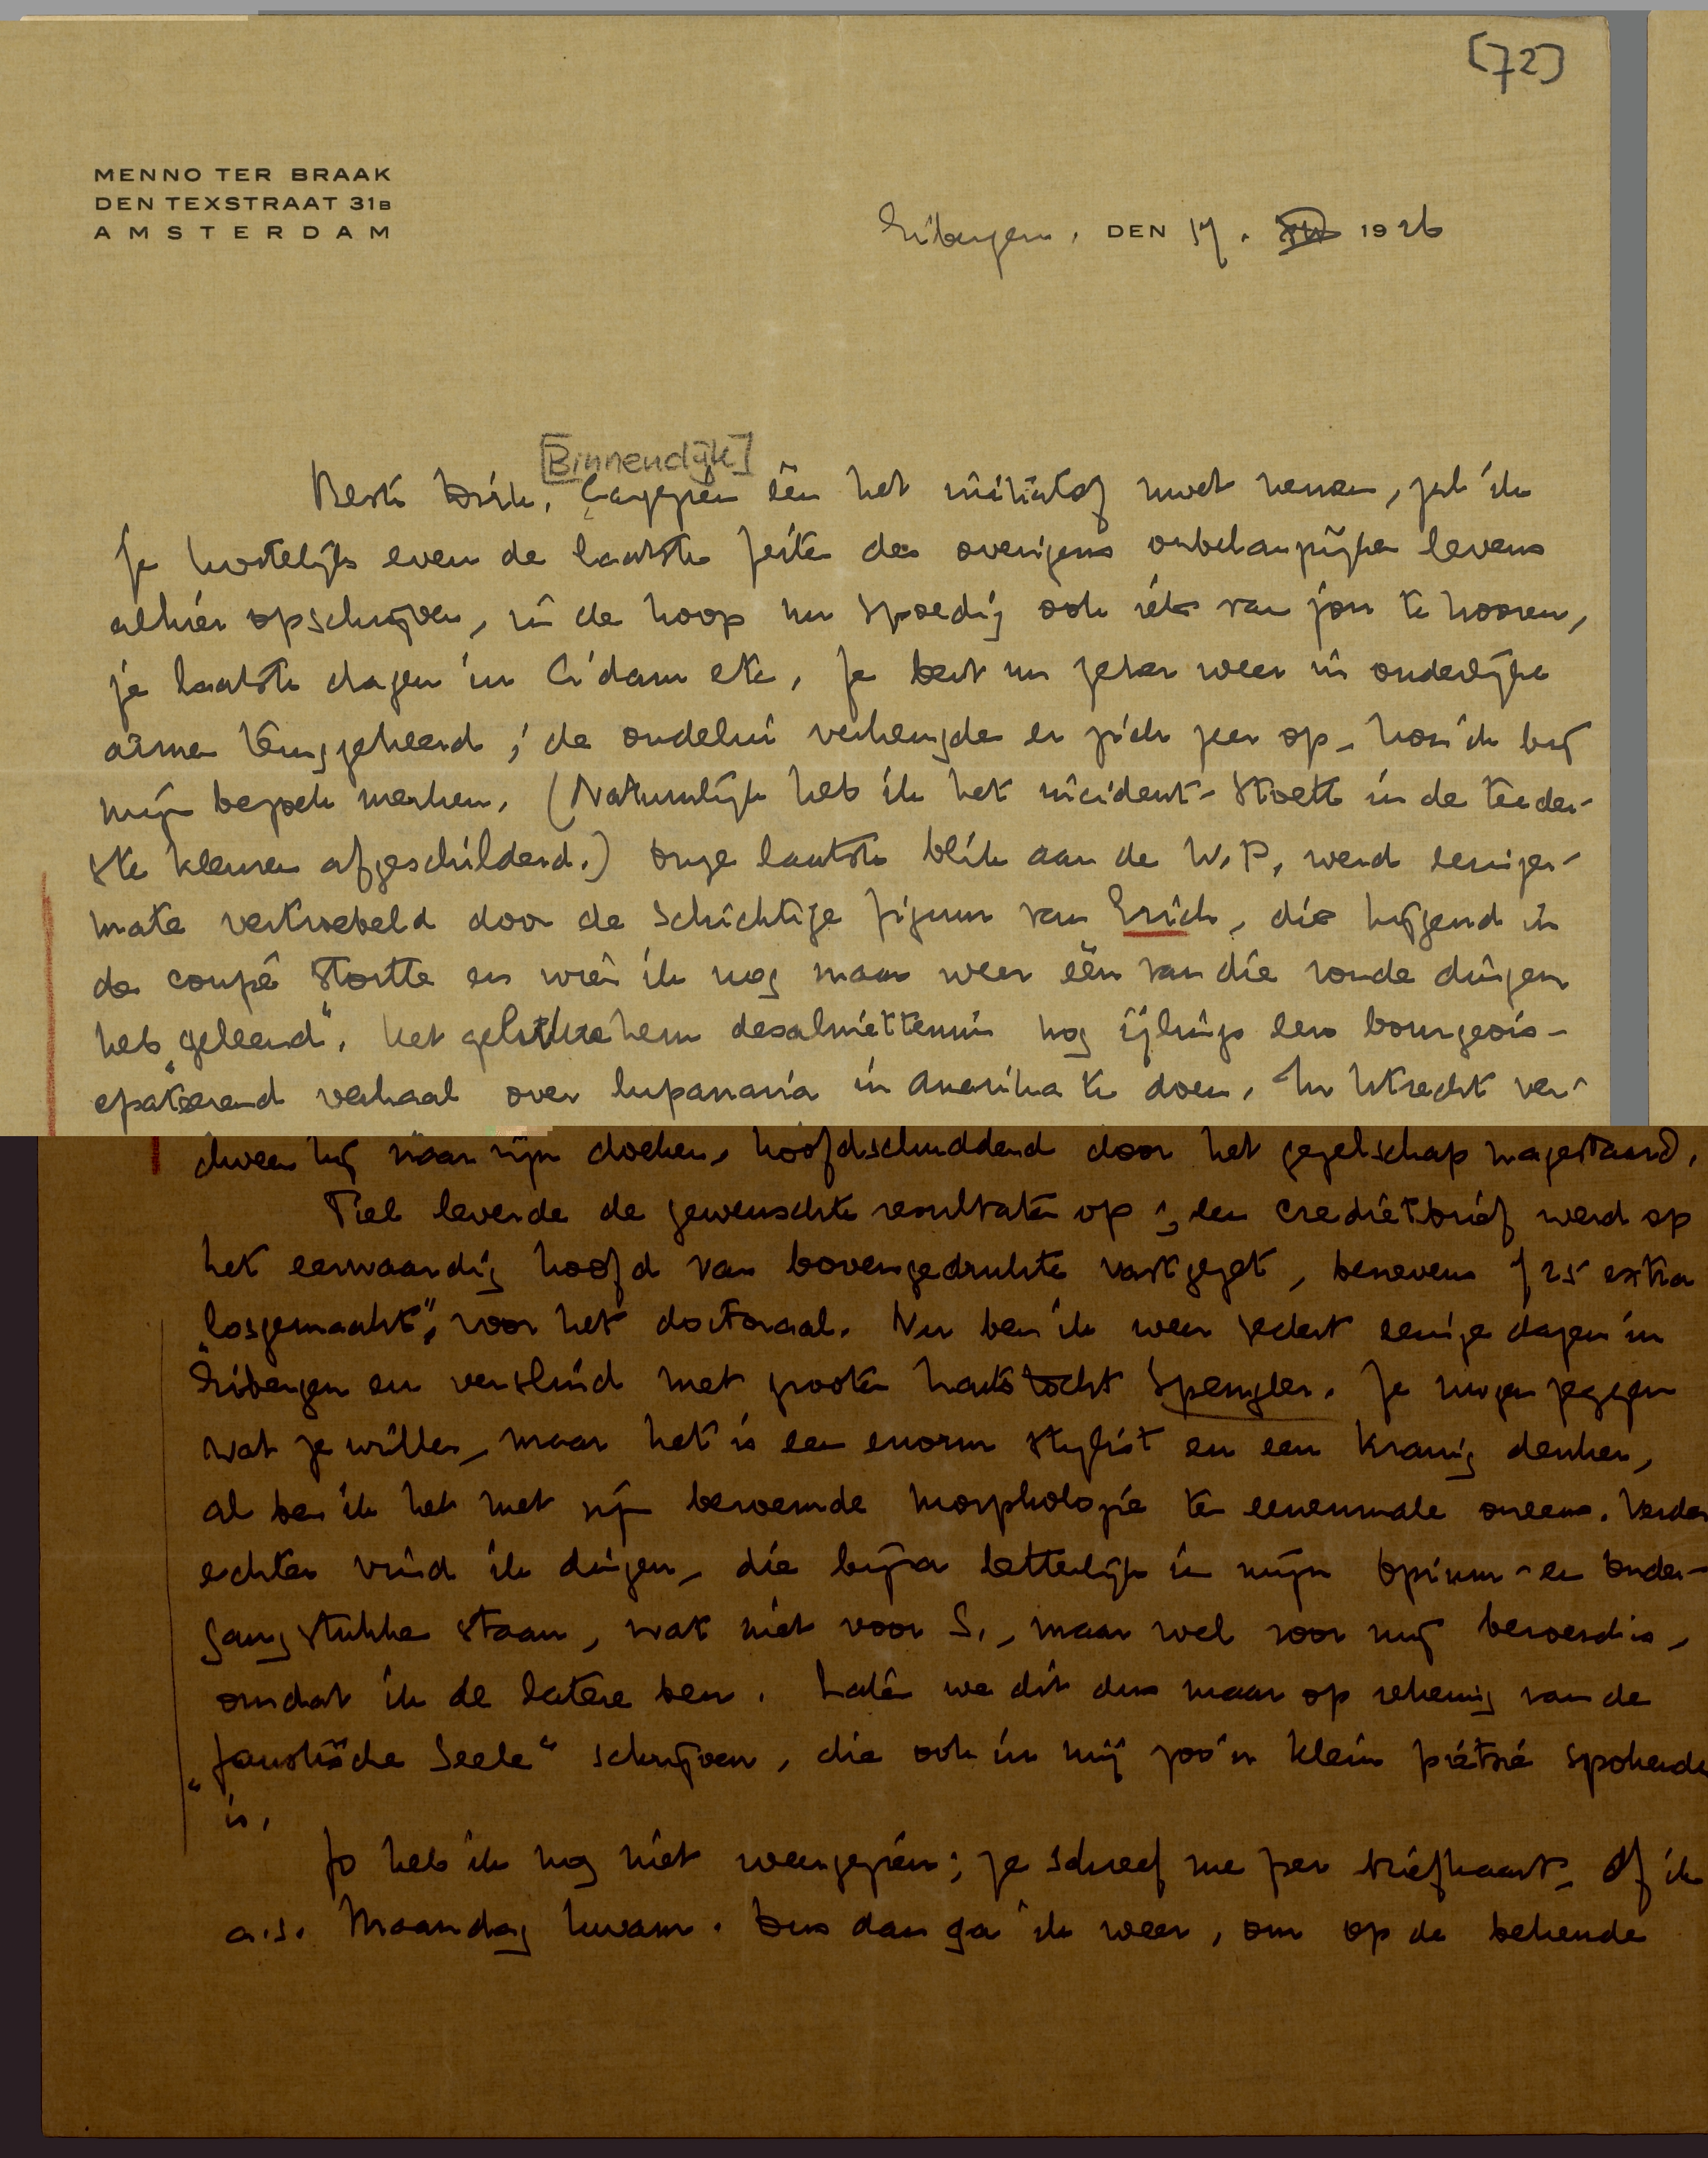 [72]
MENNO TER BRAAK
DEN TEXSTRAAT 31B
AMSTERDAM
Eibergen, DEN 17. XII 1926
[Binnendijk]
Beste Dick, Aangezien één het initiatief moet nemen, zal ik
je kortelijk even de laatste feiten des overigens onbelangrijken levens
alhier opschrijven, in de hoop nu spoedig ook iets van jou te hooren,
je laatste dagen in A'dam etc. Je bent nu zeker weer in ouderlijke
armen teruggekeerd; de oudelui verheugden er zich zeer op, kon ik bij
mijn bezoek merken. (Natuurlijk heb ik het incident-Stoett in de teeder-
ste kleuren afgeschilderd.) Onze laatste blik aan de W.P. werd eeniger-
mate vertroebeld door de schichtige figuur van Erich, die hijgend in
de coupé stortte en wien ik nog maar weer één van die ronde dingen
heb „geleend". Het gelukte hem desalniettemin nog ijlings een bourgeois-
epateerend verhaal over lupanaria in Amerika te doen. In Utrecht ver-
dween hij naar zijn doeken, hoofdschuddend door het gezelschap nagestaard.
Tiel leverde de gewenschte resultaten op; een credietbrief werd op
het eerwaardig hoofd van bovengedrukte vastgezet, benevens f 25 extra
„losgemaakt", voor het doctoraal. Nu ben ik weer sedert eenige dagen in
Eibergen en verslind met grooten hartstocht Spengler. Je mogen zeggen
wat je willen, maar het is een enorm stylist en een kranig denker,
al ben ik het met zijn beroemde morphologie ten eenenmale oneens. Verder
echter vind ik dingen, die bijna letterlijk in mijn Opium- en Onder-
gangstukken staan, wat niet voor S., maar wel voor mij beroerd is,
omdat ik de latere ben. Laten we dit dus maar op rekening van de
„faustische Seele" schrijven, die ook in mij zoo'n klein pietsie spokende
is.
Jo heb ik nog niet weergezien; ze schreef me per briefkaart, of ik
a.s. Maandag kwam. Dus dan ga ik weer, om op de bekende